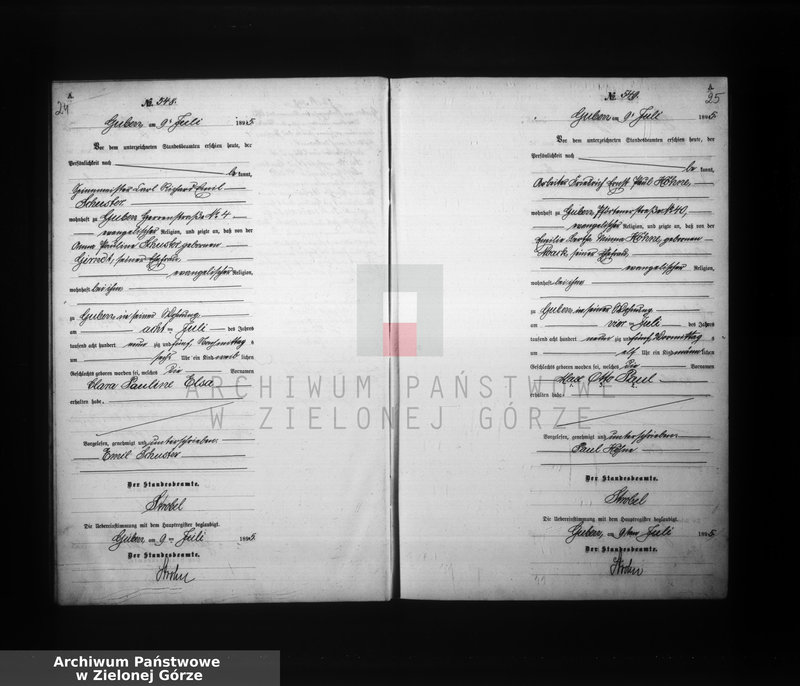 A
24
№ 548.
Guben am 9ten Juli 1895
Vor dem unterzeichneten Standesbeamten erschien heute, der
Persönlichkeit nach
be kannt,
Carl Richard Emil
Schuster
wohnhaft zu Guben Herrenstraße № 4
evangelischer Religion, und zeigte an, daß von der
Anna Pauline Schuster, geborenen
seiner Ehefrau,
evangelischer Religion,
wohnhaft bei ihm
zu Guben in seiner Wohnung
am acht ten Juli des Jahres
tausend acht hundert neun zig und fünf Nachmittag s
um sechs Uhr ein Kind weib lichen
Geschlechts geboren worden sei, welches die Vornamen
Clara Pauline Elsa
erhalten habe.
Vorgelesen, genehmigt und unterschrieben
Emil Schuster
Der Standesbeamte.
Strobel
Die Uebereinstimmung mit dem Hauptregister beglaubigt.
Guben, am 9ten Juli 1895
Der Standesbeamte.
A
25
№ 549.
Guben am 9ten Juli 1895
Vor dem unterzeichneten Standesbeamten erschien heute, der
Persönlichkeit nach
be kannt,
Arbeiter Friedrich Ernst Paul Höhne,
wohnhaft zu Guben, № 40,
evangelischer Religion, und zeigte an, daß von der
Emilie Bertha Minna Höhne, geborenen
seiner Ehefrau,
evangelischer Religion,
wohnhaft bei ihm
zu Guben in seiner Wohnung
am vier ten Juli des Jahres
tausend acht hundert neun zig und fünf Vormittag s
um elf Uhr ein Kind männ lichen
Geschlechts geboren worden sei, welches die Vornamen
Max Otto Paul
erhalten habe.
Vorgelesen, genehmigt und unterschrieben
Paul Höhne
Der Standesbeamte.
Strobel
Die Uebereinstimmung mit dem Hauptregister beglaubigt.
Guben, am 9ten Juli 1895
Der Standesbeamte.
ARCHIWUM PAŃSTWOWE
W ZIELONEJ GÓRZE
Archiwum Państwowe
w Zielonej Górze